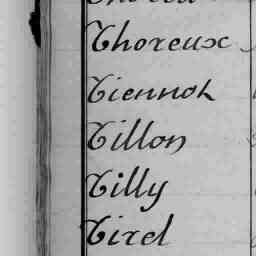 Thoreux
Tiennot
Tillon
Tilly
Tirel